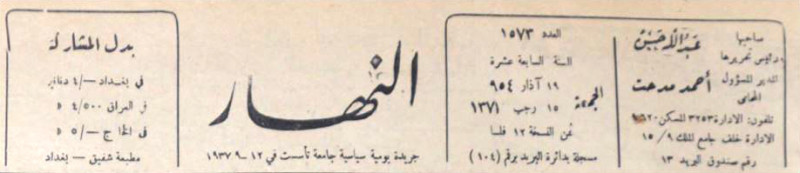 صاحبها
ورئيس تحريرها
المدير المسؤول
أحمد مدحت
المحامي
تلفون: الادارة ٣٢٥٣ المسكن
الادارة خلف جامع الملك ١٥/٩
رقم صندوق البريد ١٣
العدد ١٥٧٣
السنة السابعة عشرة
الجمعة
١٩ آذار ٩٥٤
١٥ رجب ١٣٧١
ثمن النسخة ١٢ فلسا
مسجلة بدائرة البريد برقم (١٠٤)
النهار
جريدة يومية سياسية جامعة تأسست في ١٢-٩-١٩٣٧
بدل المشاركة
في بغداد -/٤ دنانير
في العراق ٤/٥٠٠ »
في الخارج -/٥ »
مطبعة شفيق - بغداد